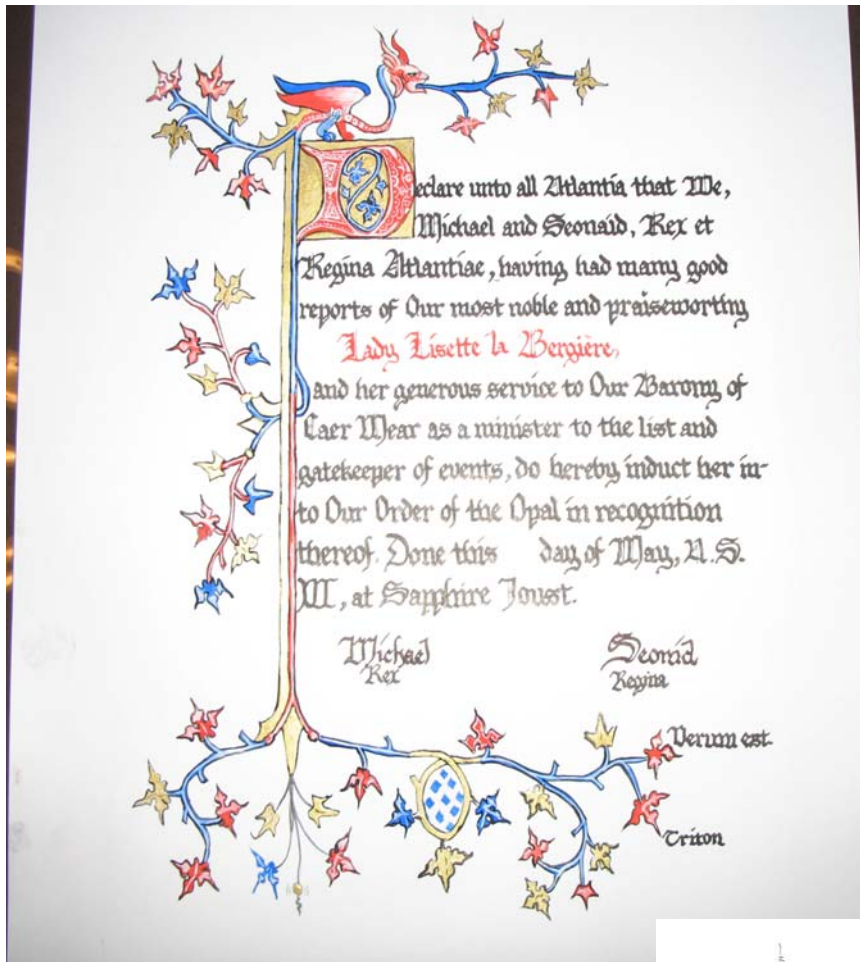 Declare unto all Atlantia that We,
Michael and Seonaid, Rex et
Regina Atlantiae, having had many good
reports of Our most noble and praiseworthy
Lady Lisette la Bergière,
and her generous service to Our Barony of
Caer Mear as a minister to the list and
gatekeeper of events, do hereby induct her in-
to Our Order of the Opal in recognition
thereof. Done this day of May, A.S.
at Sapphire Joust.
Michael Seonid
Rex Regina
Verum est.
Triton